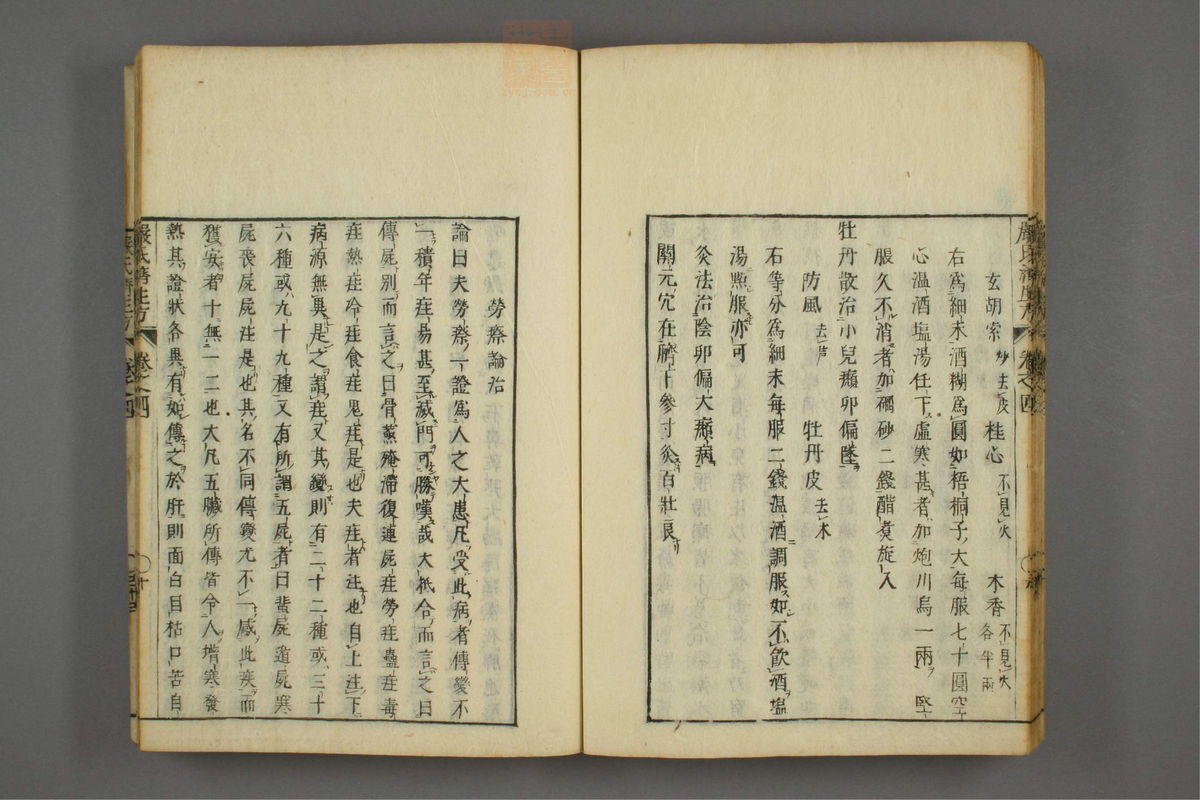 玄胡索炒去皮 桂心不見火 木香不見火各半兩
右為細末酒糊為圓如梧桐子大每服七十圓空
心温酒塩湯任下虚寒甚者加炮川烏一兩堅
服久不消者加硇砂二錢醋煑旋入
牡丹散治小兒癩卵偏墜
防風去芦 牡丹皮去木
右等分為細末每服二錢温酒調服如不飲酒塩
湯㸃服亦可
灸法治陰卵偏大癩病
關元穴在臍下參寸灸百壯良
嚴氏濟生方 卷之四
勞瘵論治
論曰夫勞瘵一證為人之大患凡受此病者傳變不
一積年疰易甚至滅門可勝嘆哉大抵合而言之曰
傳屍別而言之曰骨蒸殗殜復連屍疰勞疰蠱疰毒
疰熱疰冷疰食疰鬼疰是也夫疰者注也自上注下
病源無異是之謂疰又其變則有二十二種或三十
六種或九十九種又有所謂五屍者曰蜚屍遁屍寒
屍喪屍屍注是也其名不同傳變尤不一感此疾而
獲安者十無一二也大凡五臟所傳皆令人増寒發
熱其證狀各異有如傳之於肝則面白目枯口苦自
嚴氏濟生方 卷之四